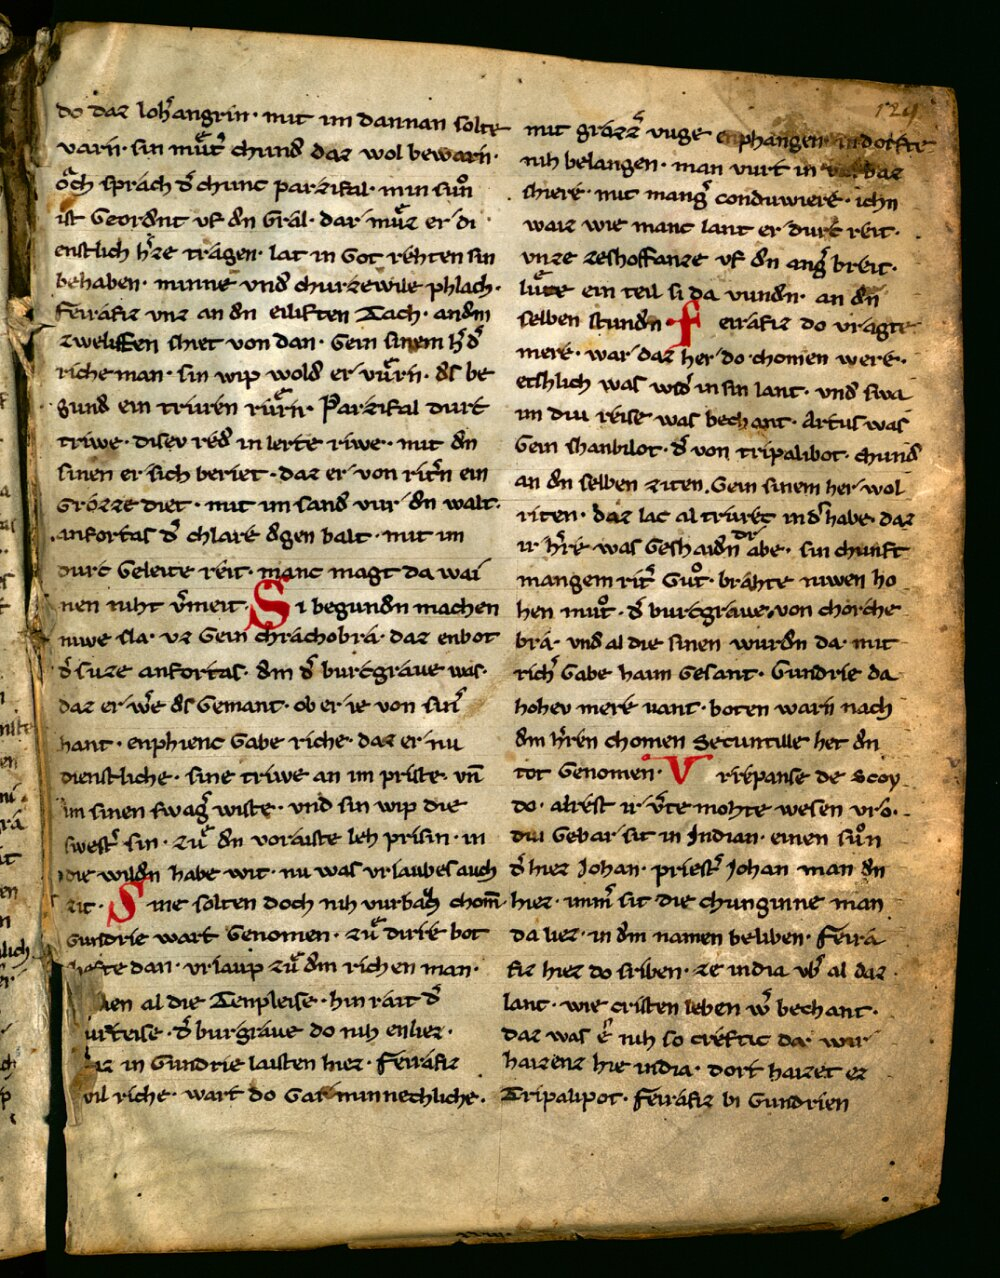 124
do daz loh̛angrin · mit im dannan solte
varn · sin muͤt̛ chund daz wol bewarn ·
oͮch sprách d̛ chunc parzifal · min suͦn
ist Geordn̄t vf dn̄ Grâl · dar muͤz er di
enstlich h̛ze tragen · lat in Got rehten sin
behaben · minne vnd churzewile phlach ·
feirâfiz vnz an dn̄ eiliften Tach · andm̄
zweliffen shiet von dan · Gein sinem h̛ d̛
riche man · sin wip wold er vuͤrn · ds be
gund ein triuren ruͤrn · Parzifal durh
triwe · disev réd in lerte riwe · mit dn̄
sinen er sich beriet · daz er von rit̛n ein
Grôzze diet · mit im sand vur dn̄ walt ·
anfortas d̛ chlare dgen balt · mit im
durc Geleite reit · manc magt da wai
nen niht v̛meit · Si begundn̄ machen
niwe sla · vz Gein chráchobrá · daz enbot
d̛ suze anfortas · dm̄ d̛ burcgrâue was ·
daz er w̛e ds Gemant · ob er ie von sin̛
hant · enphienc Gabe riche · daz er nu
dienstliche · sine triwe an im priste · vn̄
im sinen swag̛ wiste · vnd sin wip die
swest̛ sin · zuͤ dn̄ voráiste leh prisin · in
die wildn̄ habe wit · nu was vrlaubes auch
zit · Sine solten doch nih vurbaz chom̄ ·
Gundrie wart Genomen · zuͤ dirre bot
shafte dan · vrlaup zuͤ dm̄ richen man ·
al die Tenpleise · hin râit d̛
kurteise · d̛ burgrâue do nih enliez ·
in Gundrie laisten hiez · feirâfiz
vil riche · wart do Gar minnechliche ·
mit grozz̛ vuge enphangen · in dorfte
nih belangen · man vurt in vurbaz
shiere · mit mang̛ conduwiere · ichn
waiz wie manc lant er durc reit ·
vnze zeshoffanze vf dn̄ ang̛ breit ·
luͤte ein teil si da vundn̄ · an dn̄
selben stundn̄ · feirâfiz do vragte
mere · war daz her do chomen were ·
etshlich was wid̛ in sin lant · vnd swa
im diu reise was bechant · Artus was
Gein shanbilot · d̛ von tripalibot · chund
an dn̄ selben ziten · Gein sinem her wol
riten · daz lac al triurec in d̛ habe · daz
ir h̛re was Geshaidn̄ dr abe · sin chunft
mangem rit̛ Guͦt · brâhte niwen ho
hen muͦt · d̛ burcgraue von chorche
brá · vnd al die sinen wurdn̄ da · mit
rich̛ Gabe haim Gesant · Gundrie da
hohev mere vant · boten warn nach
dm̄ h̛ren chomen Secuntille het dn̄
tot Genomen · Vriépanse de scoy
do · alrest ir v̛te mohte wesen vro ·
diu Gebar sit in Indian · einen suͦn
d̛ hiez Johan · priest̛ Johan man dn̄
hiez · imm̛ sit die chunginne man
da liez · in dm̄ namen beliben · feirâ
fiz hiez do sriben · ze india vb̛ al daz
lant · wie cristen leben w̛ bechant ·
daz was é nih so creftic da · wir
haizenz hie india · dort haizet ez
Tripalipot · feirâfiz bi Gundrien